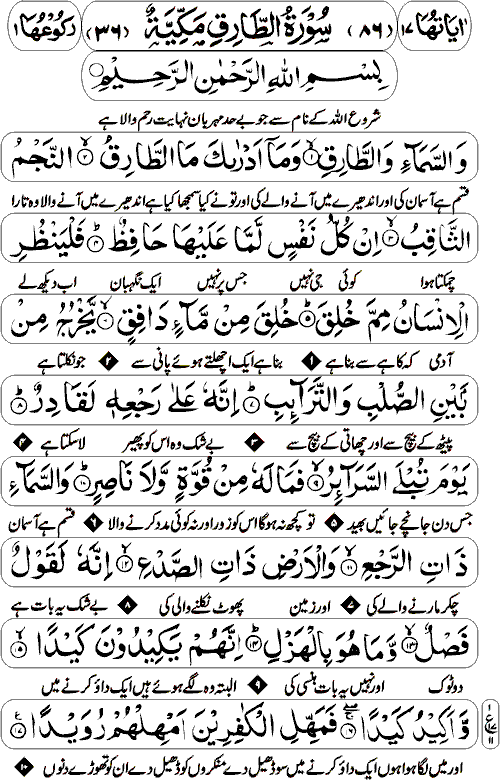 اٰیاتُهَا ۱۷ (۸۶) سُوْرَةُ الطَّارِقِ مَکِّیَّةٌ (۳۶) رکُوْعُهَا ۱
بِسْمِ اللهِ الرَّحْمٰنِ الرَّحِیْمِ
شروع اللہ کے نام سے جو بے حد مہربان نہایت رحم والا ہے
وَالسَّمَآءِ وَالطَّارِقِ ۱ وَمَآ اَدْرٰىكَ مَا الطَّارِقُ ۲ النَّجْمُ
قسم ہے آسمان کی اور اندھیرے میں آنے والے کی اور تو نے کیا سمجھا کیا ہے اندھیرے میں آنے والا وہ تارا
الثَّاقِبُ ۳ اِنْ كُلُّ نَفْسٍ لَّمَّا عَلَیْهَا حَافِظٌ ۴ فَلْیَنْظُرِ
چمکتا ہوا کوئی جی نہیں جس پر نہیں ایک نگہبان اب دیکھ لے
الْاِنْسَانُ مِمَّ خُلِقَ ۵ خُلِقَ مِنْ مَّآءٍ دَافِقٍ ۶ یَّخْرُجُ مِنْ
آدمی کہ کاہے سے بنا ہے ۱ بنا ہے ایک اچھلتے ہوئے پانی سے ۲ جو نکلتا ہے
بَیْنِ الصُّلْبِ وَالتَّرَآئِبِ ۷ اِنَّهٗ عَلٰی رَجْعِهٖ لَقَادِرٌ ۸
پیٹھ کے بیچ سے اور چھاتی کے بیچ سے ۳ بے شک وہ اس کو پھیر لا سکتا ہے ۴
یَوْمَ تُبْلَی السَّرَآئِرُ ۹ فَمَا لَهٗ مِنْ قُوَّةٍ وَّلَا نَاصِرٍ ۱۰ وَالسَّمَآءِ
جس دن جانچے جائیں بھید ۵ تو کچھ نہ ہوگا اس کو زور اور نہ کوئی مدد کرنے والا ۶ قسم ہے آسمان
ذَاتِ الرَّجْعِ ۱۱ وَالْاَرْضِ ذَاتِ الصَّدْعِ ۱۲ اِنَّهٗ لَقَوْلٌ
چکر مارنے والے کی ۷ اور زمین پھوٹ نکلنے والی کی ۸ بے شک یہ بات ہے
فَصْلٌ ۱۳ وَّمَا هُوَ بِالْهَزْلِ ۱۴ اِنَّهُمْ یَكِیْدُوْنَ كَیْدًا ۱۵
دو ٹوک اور نہیں یہ بات ہنسی کی ۹ البتہ وہ لگے ہوئے ہیں ایک داؤ کرنے میں
وَّاَكِیْدُ كَیْدًا ۱۶ فَمَهِّلِ الْكٰفِرِیْنَ اَمْهِلْهُمْ رُوَیْدًا ۱۷ ع
اور میں لگا ہوا ہوں ایک داؤ کرنے میں سو ڈھیل دے منکروں کو ڈھیل دے ان کو تھوڑے دنوں ۱۰